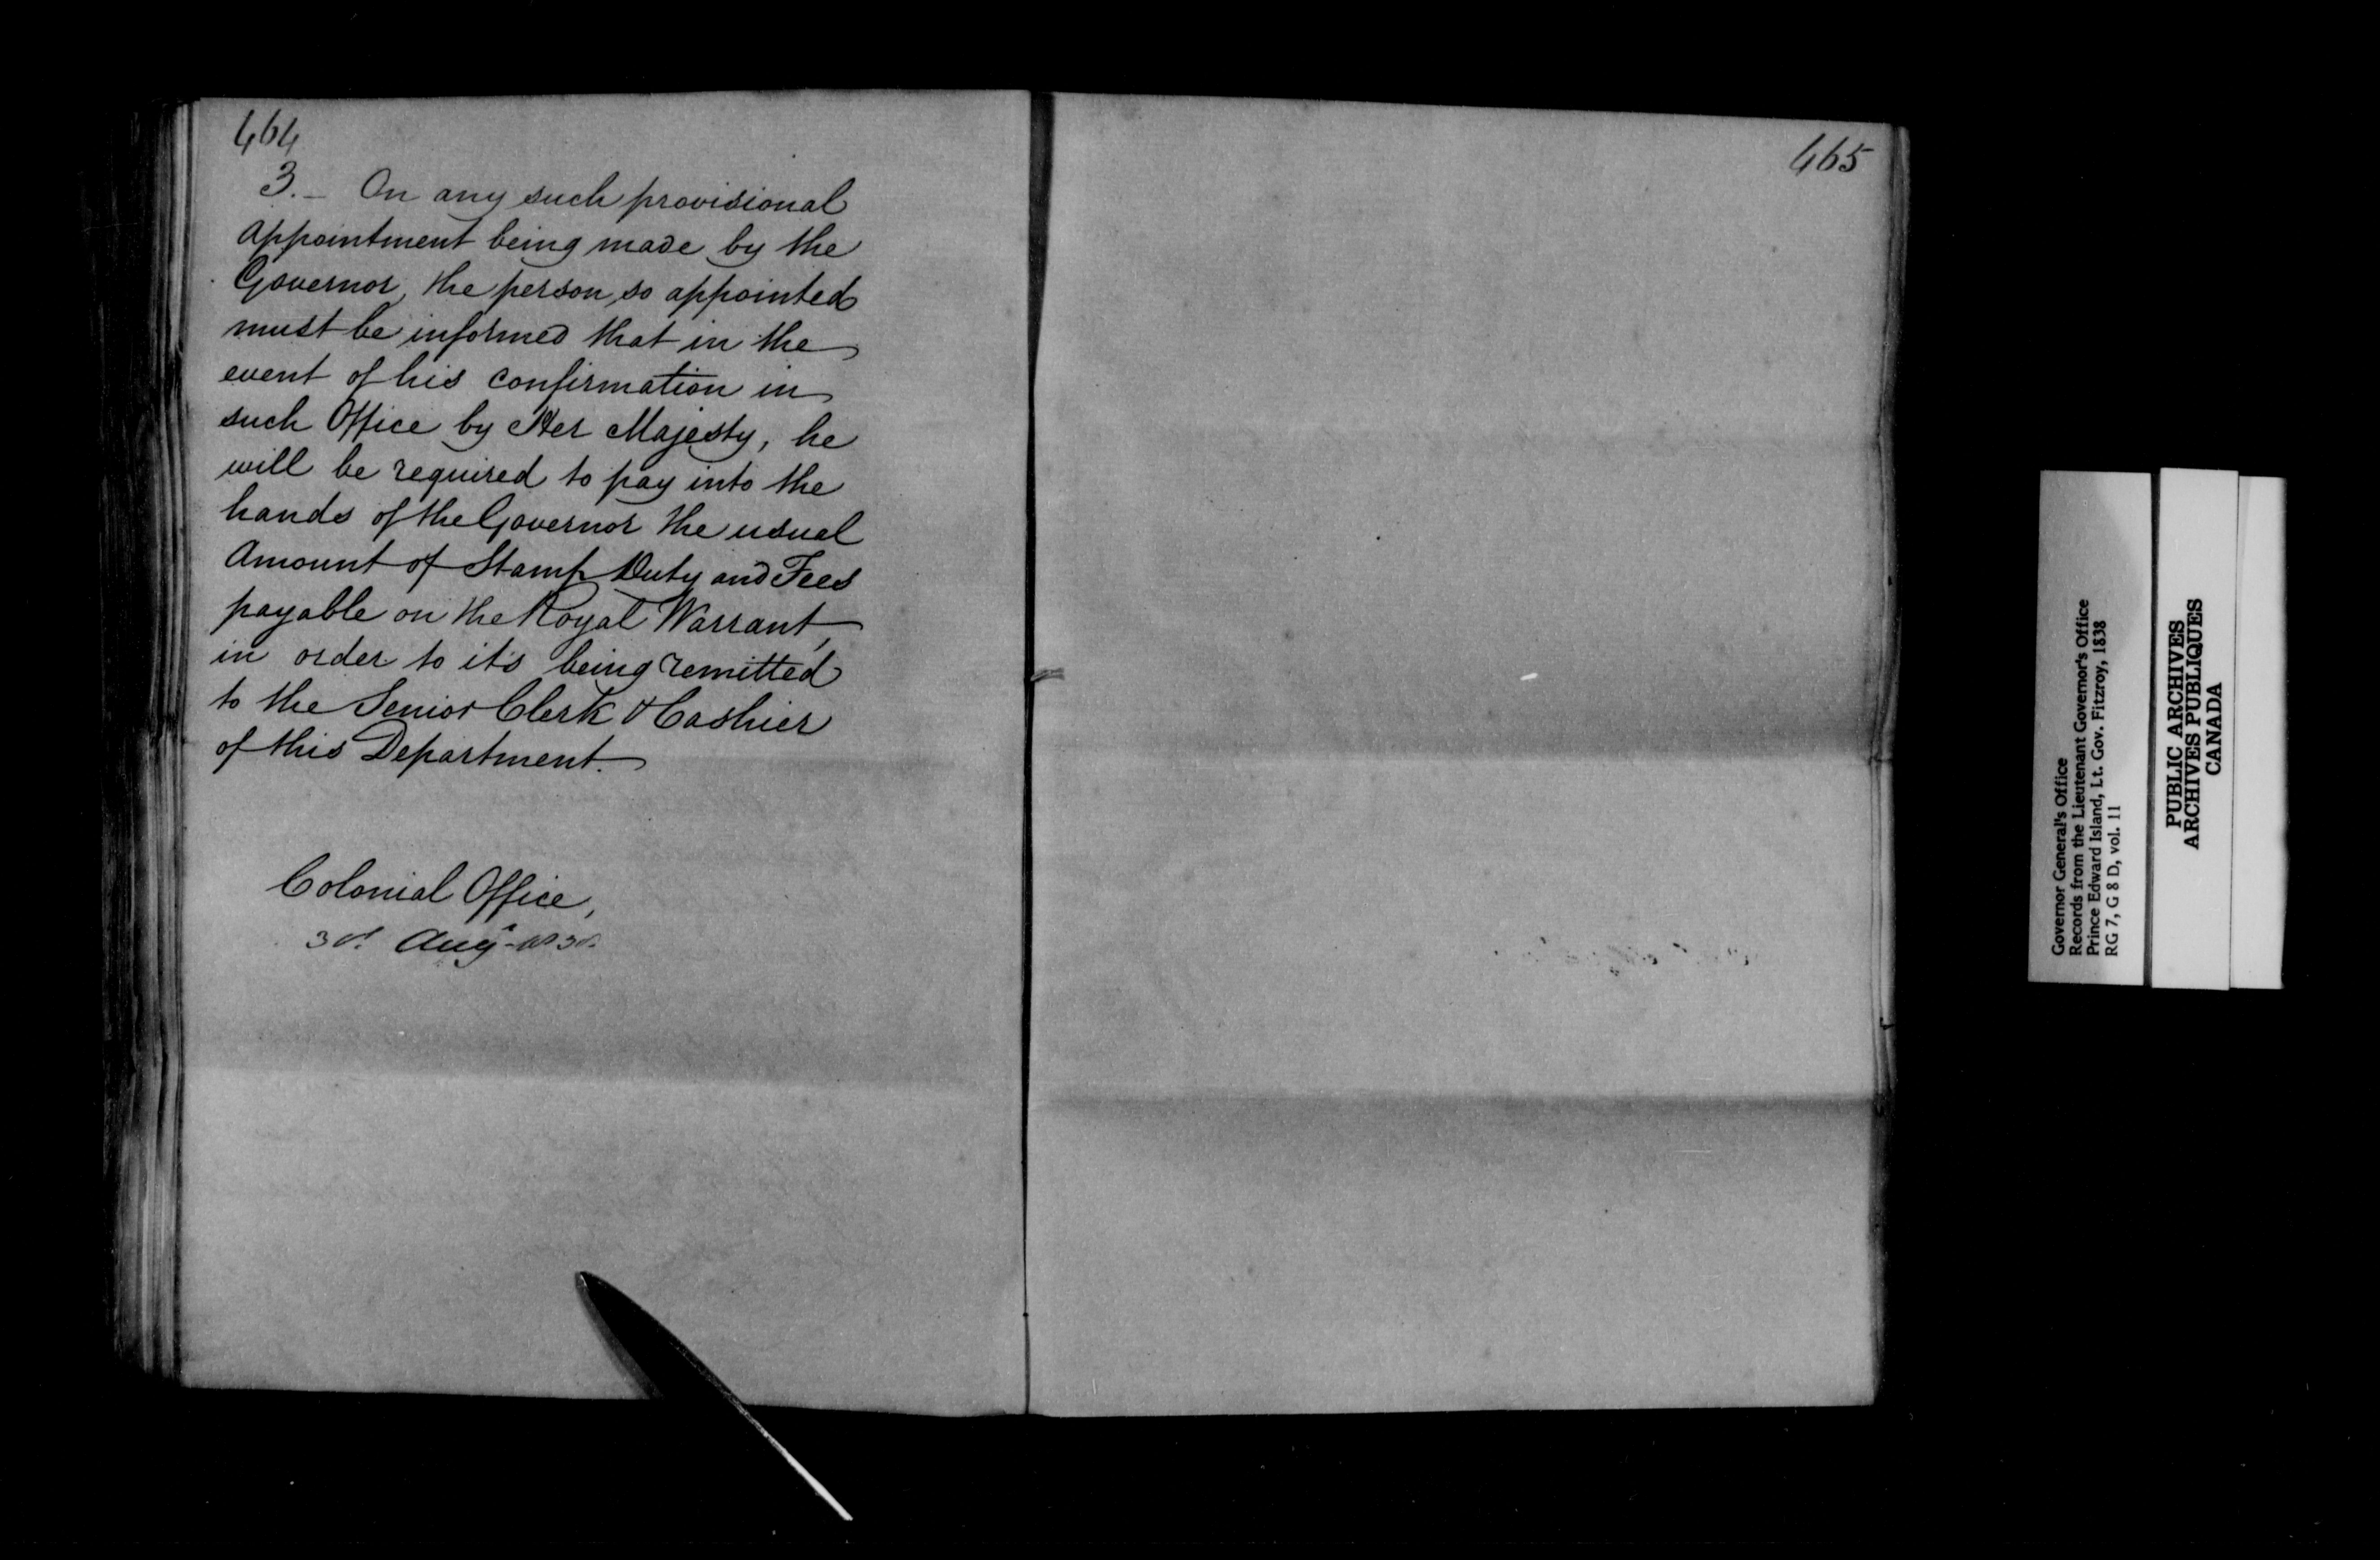 464
3. _ On any such provisional
appointment being made by the
Governor, the person so appointed
must be informed that in the
event of his confirmation in
such Office by Her Majesty, he
will be required to pay into the
hands of the Governor the usual
Amount of Stamp Duty and Fees
payable on the Royal Warrant,
in order to it's being remitted
to the Senior Clerk & Cashier
of this Department.
Colonial Office,
3d. Augt
465
Governor General's Office
Records from the Lieutenant Governor's Office
Prince Edward Island, Lt. Gov. Fitzroy, 1838
RG 7, G 8 D, vol. 11
PUBLIC ARCHIVES
ARCHIVES PUBLIQUES
CANADA